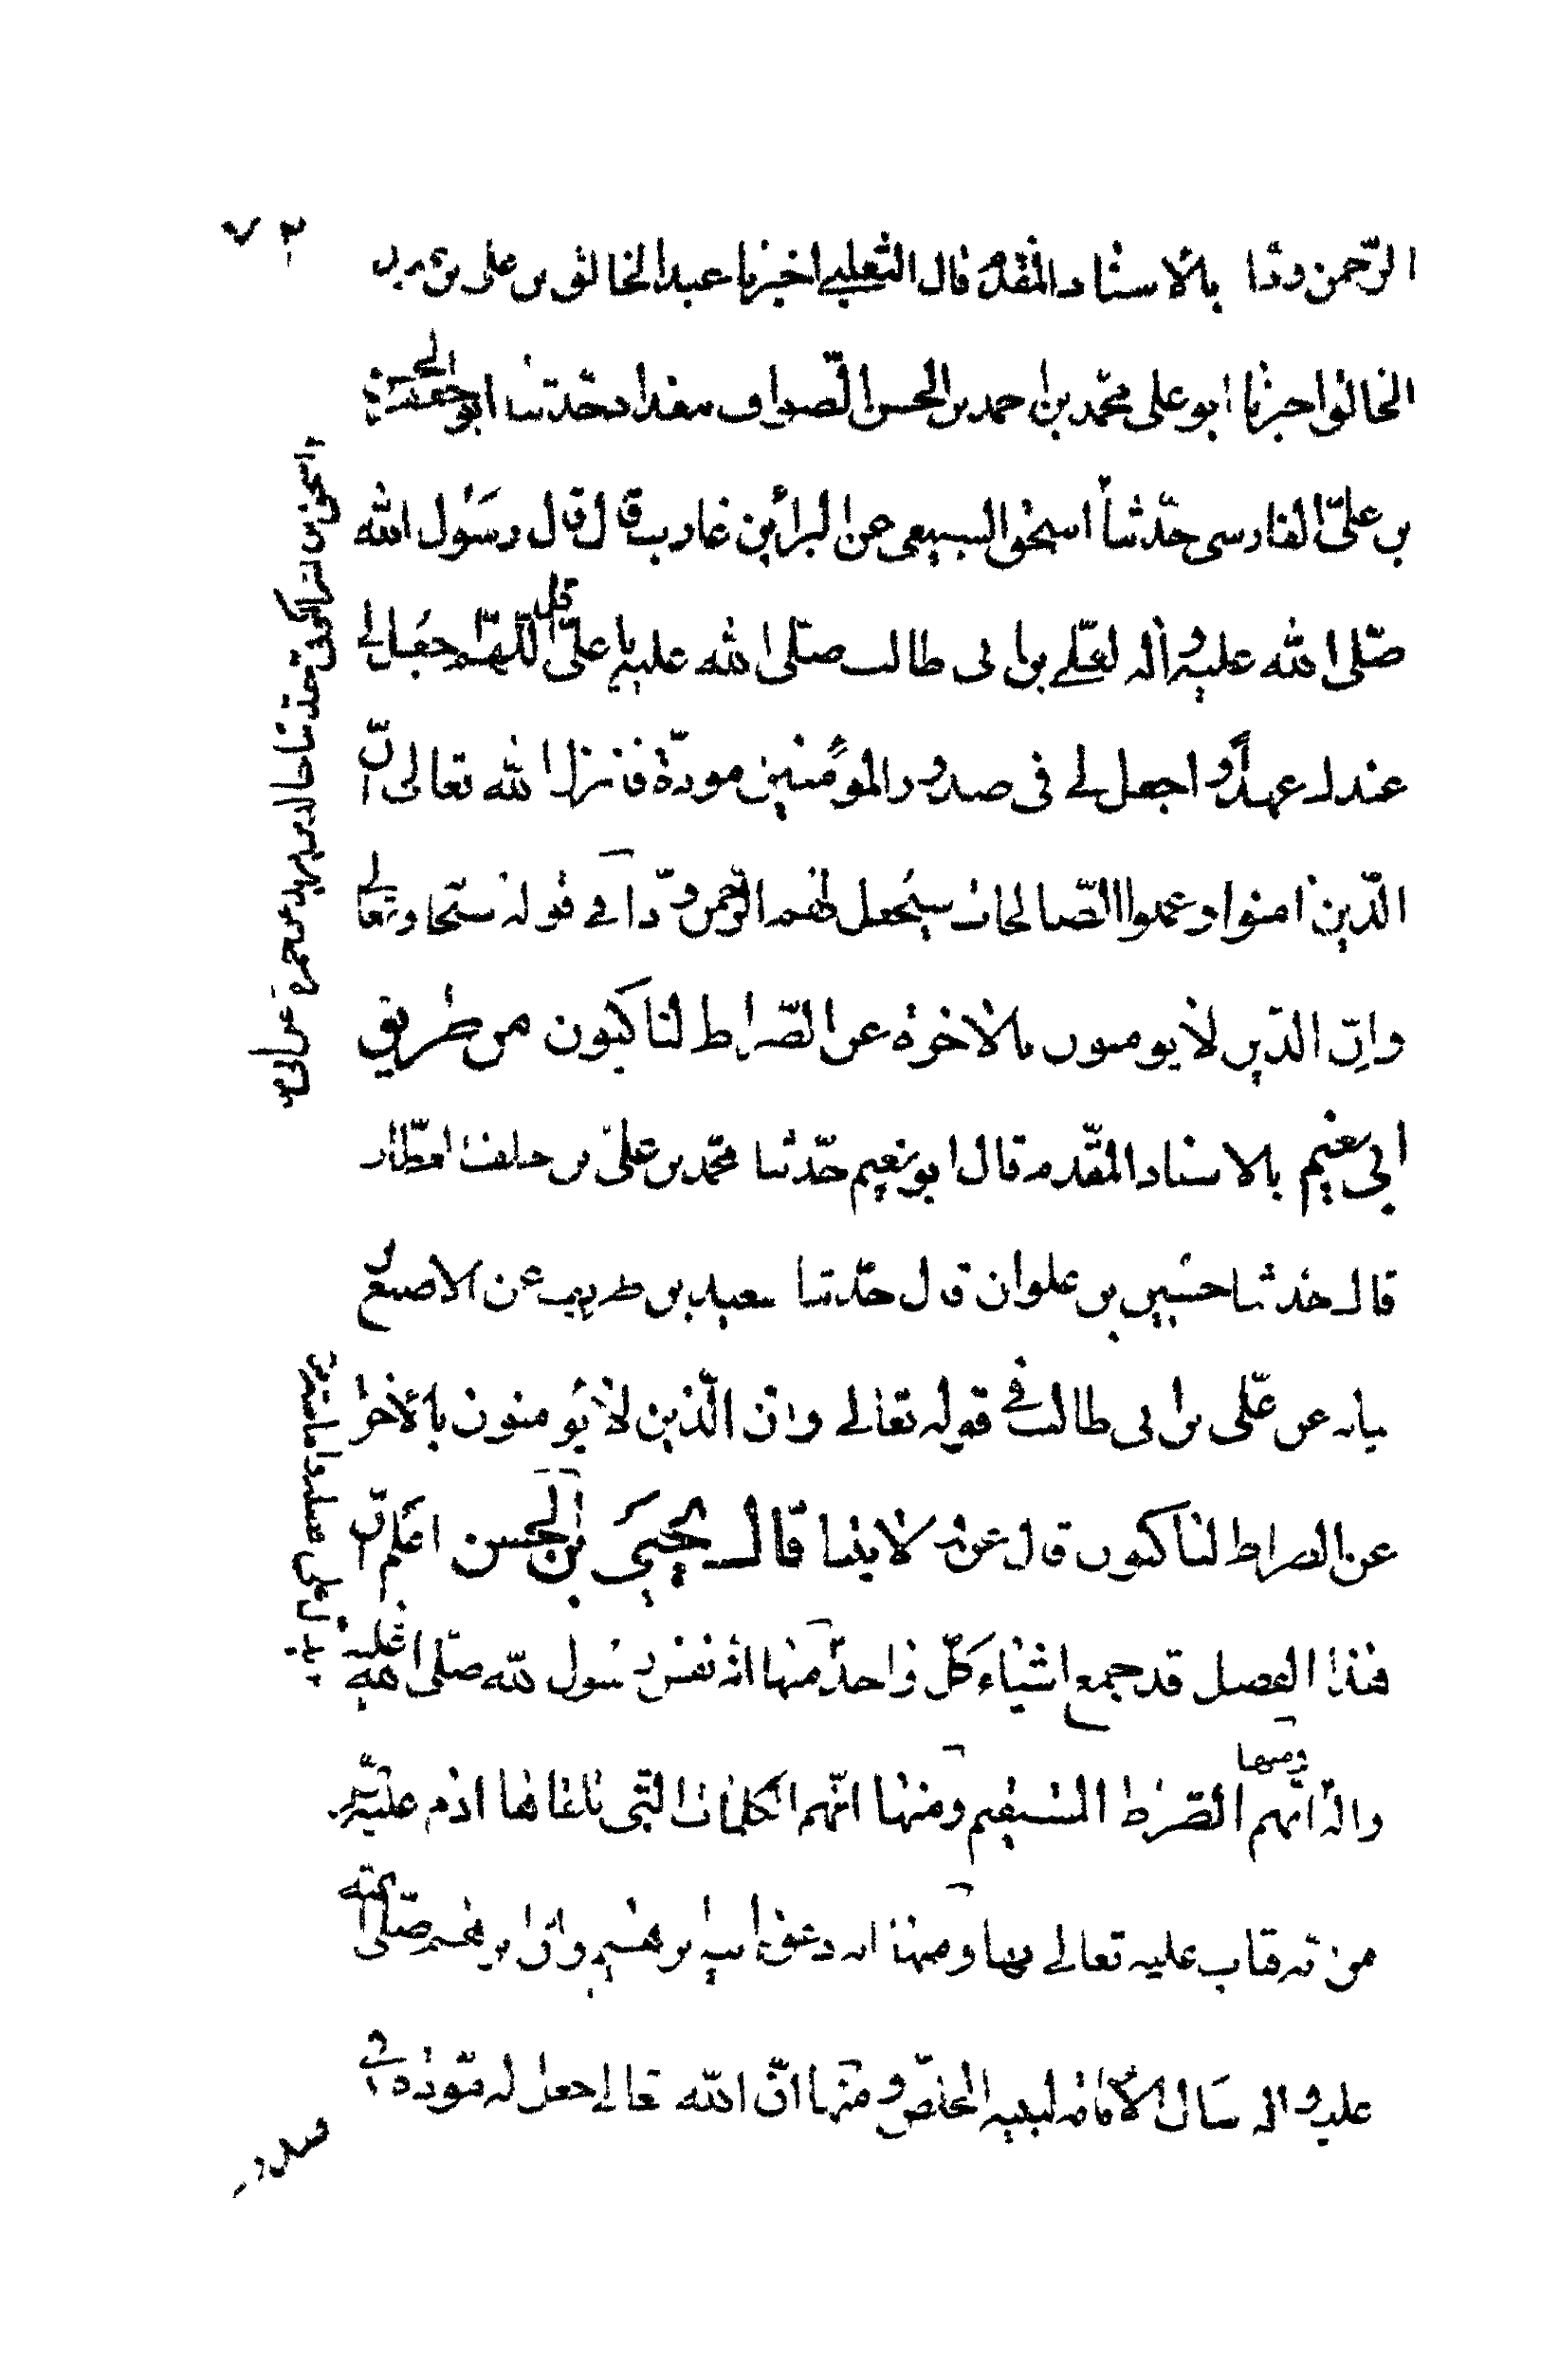 ٧٢
الرّحمن ودّا بالاسناد المقدّم قال الثعلبي اخبرنا عبد الخالق بن علي بن عبد
الخالق اخبرنا ابو علي محمّد بن احمد بن الحسن الصّواف ببغداد حدّثنا ابو جعفر الحسن
بن عليّ الفارسي حدّثنا اسحق السبيعي عن البرائين عازب قال قال رسول الله
صلّى الله عليه واله لعلي بن ابي طالب صلّى الله عليه يا عليّ قل اللّهمّ اجعل لي
عندك عهداً واجعل لي في صدور المؤمنين مودّة فانزل الله تعالى انّ
الّذين امنوا وعملوا الصّالحات سيجعل لهم الرّحمن ودّا في قوله سبحانه وتعالى
وانّ الذين لا يومنون بالاخرة عن الصّراط لناكبون من طريق
ابي نعيم بالاسناد المقدّم قال ابو نعيم حدّثنا محمّد بن عليّ بن خلف العطّار
قال حدثنا حسين بن علوان قال حدّثنا سعيد بن طريف عن الاصبغ بن
نباته عن علّي بن ابي طالب في قوله تعالى وانّ الّذين لا يؤمنون بالاخرة
عن الصراط لناكبون قال عن ولايتنا قال يحيى بن الحسن اعلم انّ
هذا الفصل قد جمع اشياء كلّ واحد منها انه نفس رسول الله صلّى الله عليه
واله ومنها انّهم الصّراط المستقيم ومنها انّهم الكلمات الّتي تلقاها ادم عليه السّلم
من ربّه فتاب عليه تعالى بها ومنها انه دعوة ابيه ابرهيم وانّ ابرهيم صلّى الله
عليه واله سال الامامة لبنيه ومنها انّ الله تعالى جعل له مودّة في
اسحق بن بشر الكوفي حدثنا خالد بن يزيد عن حمزة عن ابي